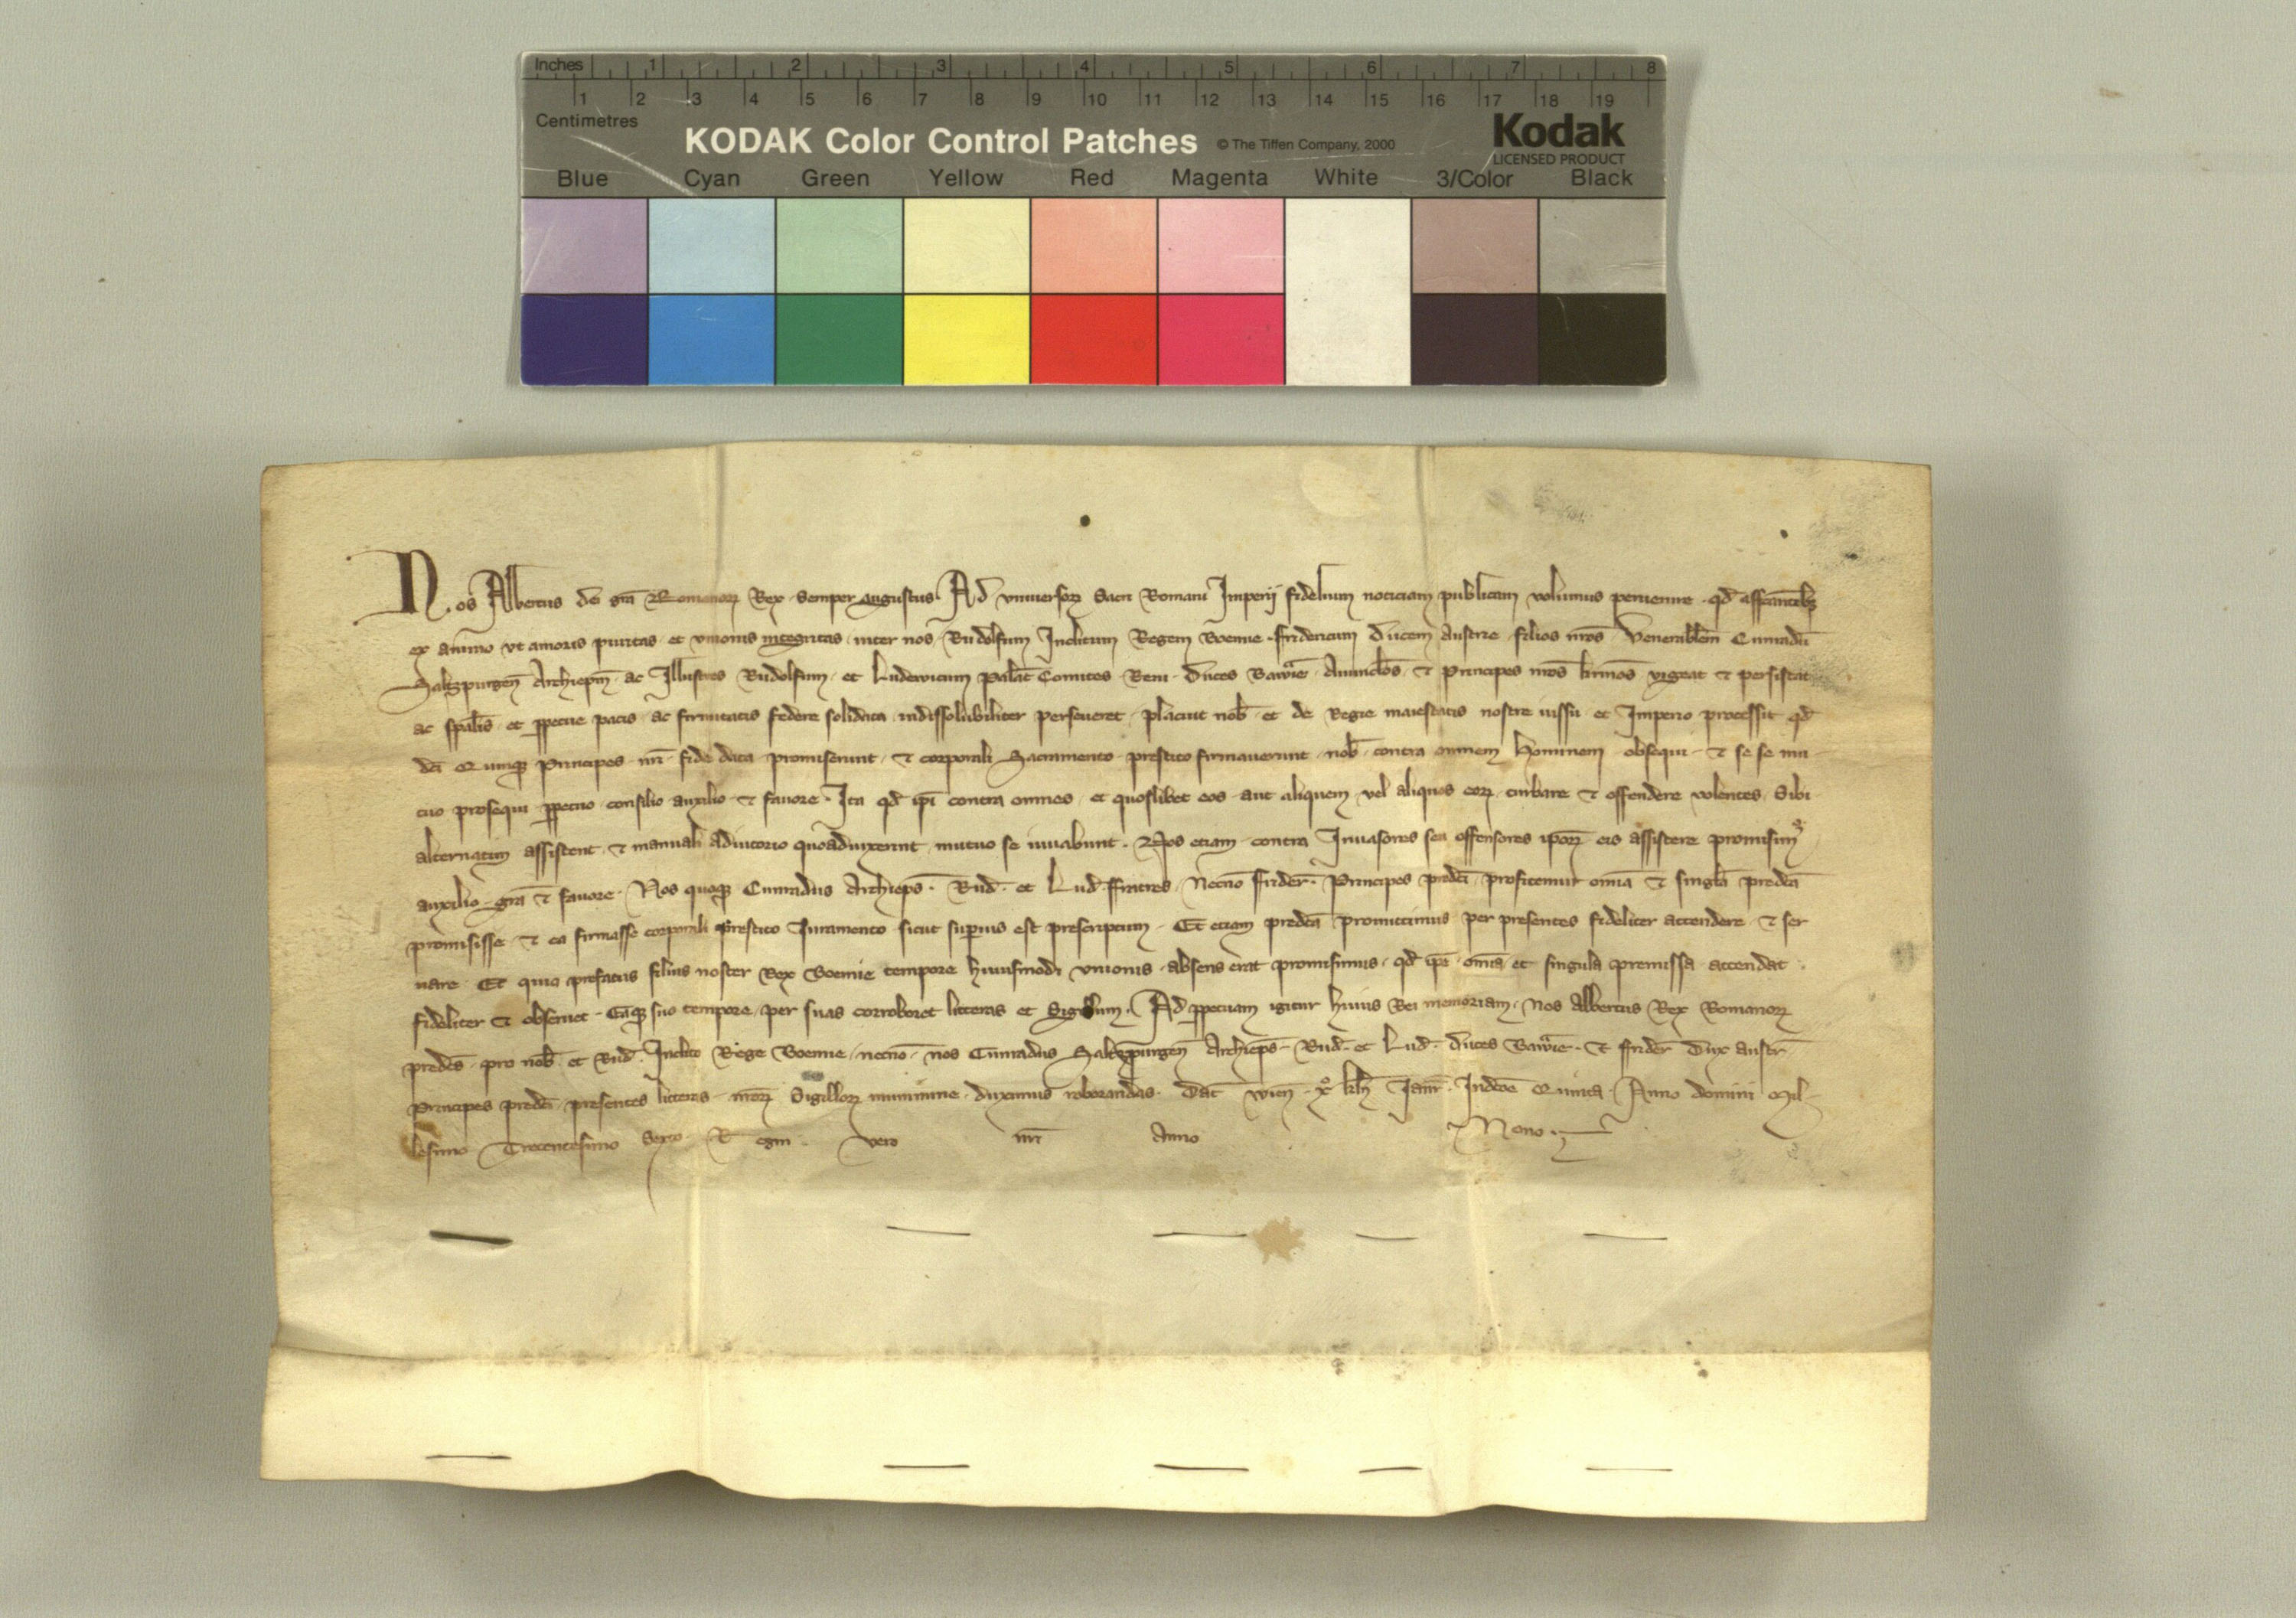 Inches 1 2 3 4 5 6 7 8
1 2 3 4 5 6 7 8 9 10 11 12 13 14 15 16 17 18 19
Centimetres
KODAK Color Control Patches © The Tiffen Company, 2000 Kodak
LICENSED PRODUCT
Blue Cyan Green Yellow Red Magenta White 3/Color Black
Nos Albertus dei gra Romanorꝝ Rex semper augustus Ad vniuersorꝝ Sacri Romani Imperij fidelium noticiam publicam volumus peruenire qd affectantes
ex animo vt amoris puritas et vnionis integritas inter nos Rudolfum Inclitum Regem Boemie Fridericum Ducem Austrie filios nros Venerabilem Cunradu
Saltzpurgen Archiepm ac Illustres Rudolfum et Ludewicum Palat Comites Reni Duces Bawarie Auunclos et Principes nros krimos vigeat et persistat
ac spalis et ꝑpetue pacis ac firmitatis federe solidata indissolubiliter perseueret placuit nob et de Regie maiestatis nostre iussu et Imperio processit qd
dci Quinqꝫ Principes nri fide data promiserunt et corporali Sacramento prestito firmauerunt nob contra omnem Hominem obsequi et se se mu
tuo prosequi ꝑpetuo consilio auxilio et fauore Ita qd ipi contra omnes et quoslibet eos aut aliquem vel aliquos eorꝝ turbare et offendere volentes Sibi
alternatim assistent et manuali adiutorio quoaduixerint mutuo se iuuabunt Nos etiam contra Inuasores seu offensores iporꝝ eis assistere promisimꝰ
auxilio gra et fauore Nos quoqꝫ Cunradus Archieps Rud et Lud ffratres Necno ffrider Principes predci profitemur omia et singla predca
promisisse et ea firmasse corporali prestito Iuramento sicut superius est prescriptum Et etiam predca promittimus per presentes fideliter attendere et ser
uare Et quia prefatus filius noster Rex Boemie tempore huiusmodi vnionis absens erat promisimus qd ipe omia et singula premissa attendat
fideliter et obseruet Eaqꝫ suo tempore per suas corroboret litteras et Sigillum Ad ꝑpetuam igitur huius Rei memoriam Nos Albertus Rex Romanorꝝ
predcs pro nob et Rud Inclito Rege Boemie necno nos Cunradus Saltzpurgen Archieps Rud et Lud Duces Bawarie et ffrider Dux Austr
Principes predci presentes litteras nrorꝝ Sigillorꝝ munimine duximus roborandas Dat Wien x kln Ianr Indcoe Quinta Anno domini Mil
lesimo Trecentesimo Sexto Regni vero nri Anno Nono